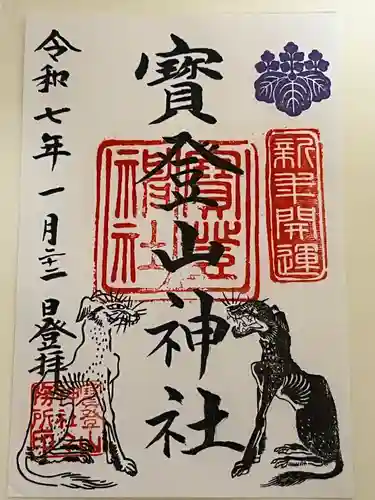 新年開運
寳登山神社
寳登山神社
令和七年一月二十二日登拝
寳登山神社社務所印